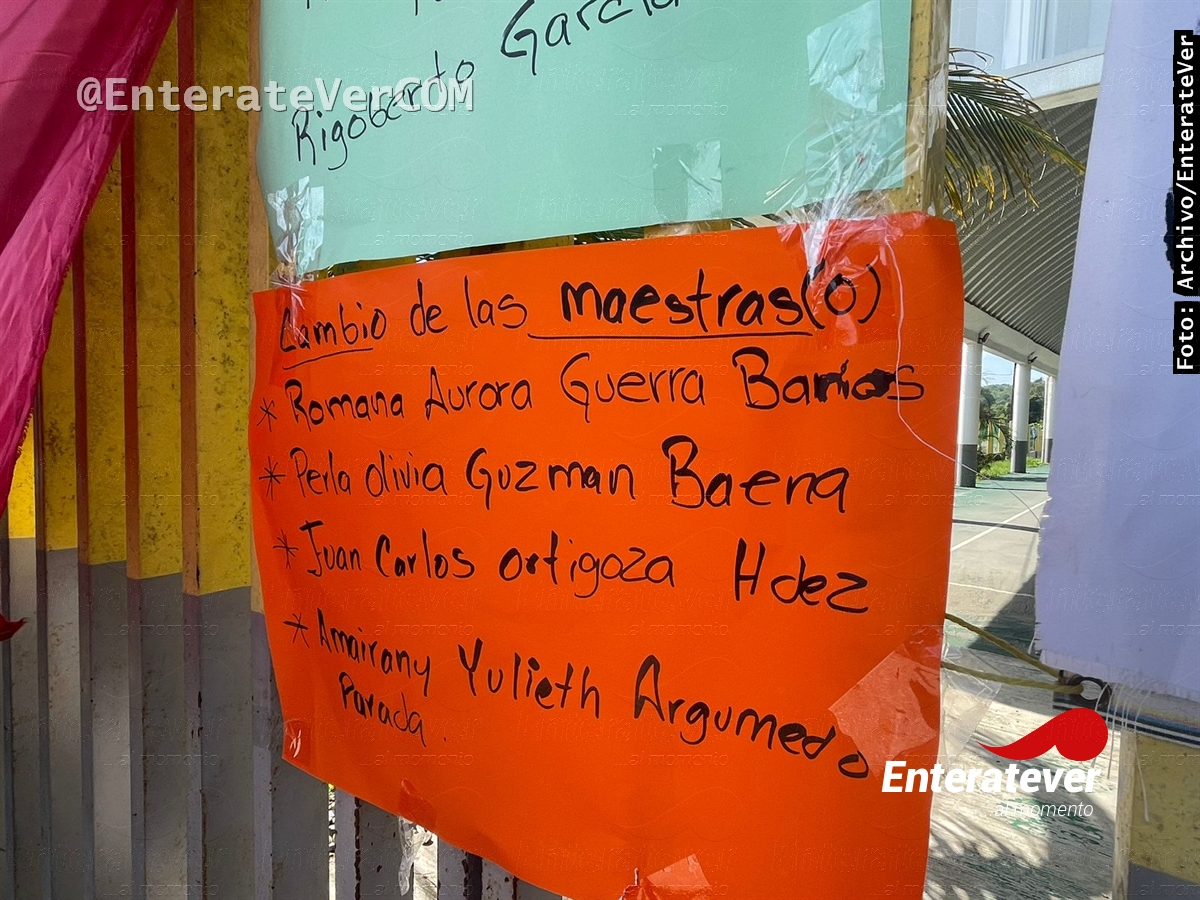 García
Rigoberto
@EnterateVerCOM
Foto: Archivo/EnterateVer
Cambio de las maestras(o)
* Romana Aurora Guerra Barrios
* Perla Olivia Guzman Baena
* Juan Carlos Ortigoza Hdez
* Amairany Yulieth Argumedo
Parada.
Enteratever
al momento